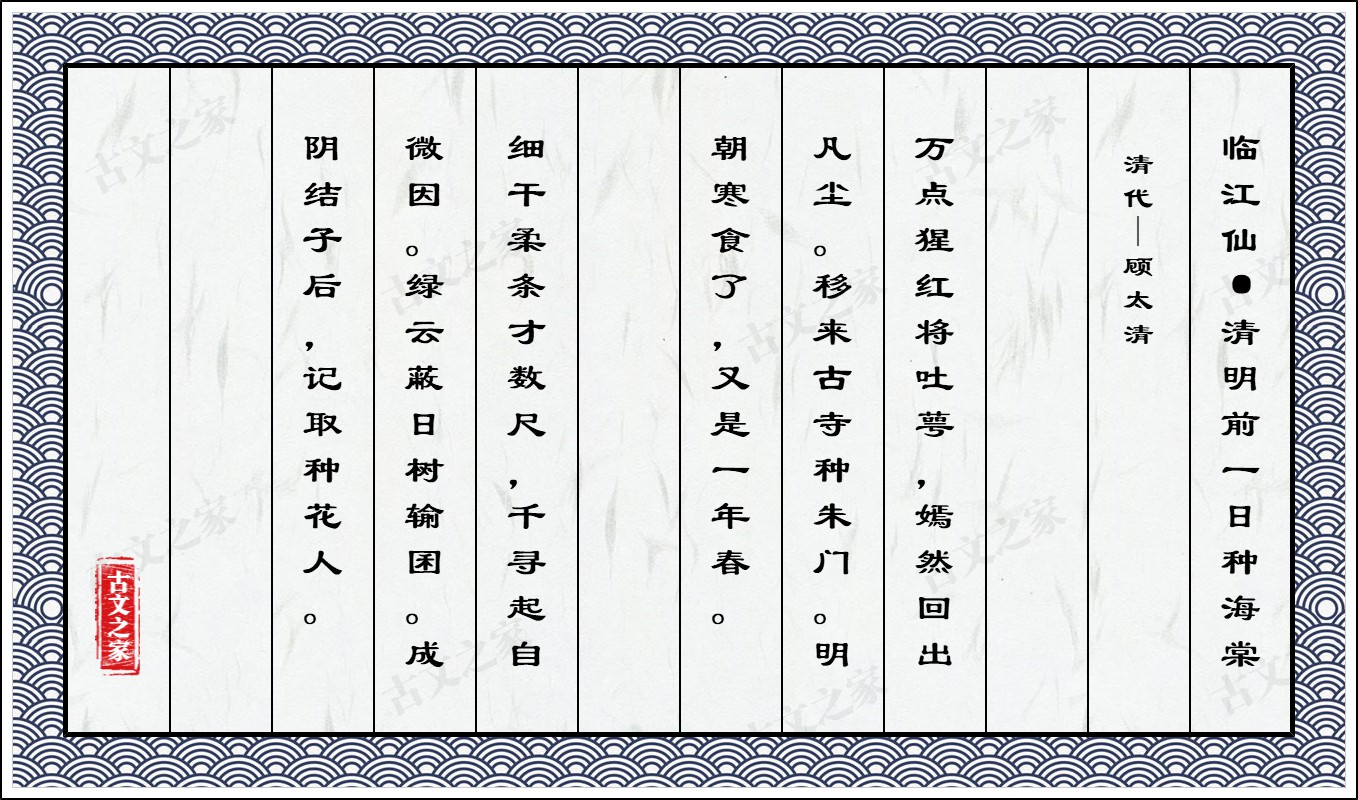 临江仙●清明前一日种海棠
清代—顾太清
万点猩红将吐萼,嫣然回出
凡尘。移来古寺种朱门。明
朝寒食了,又是一年春。
细干柔条才数尺,千寻起自
微因。绿云蔽日树输囷。成
阴结子后,记取种花人。
古文之家